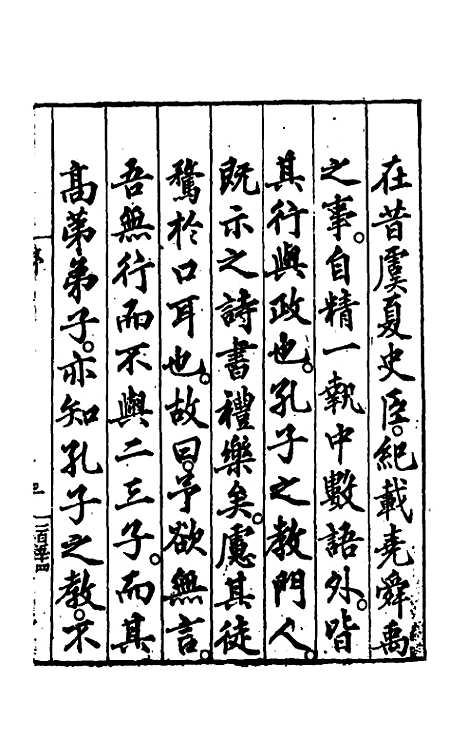 在昔虞夏史臣。紀載堯舜禹
之事。自精一執中數語外。皆
其行與政也。孔子之教門人。
既示之詩書禮樂矣。慮其徒
騖於口耳也。故曰。予欲無言。
吾無行而不與二三子。而其
高第弟子。亦知孔子之教。不